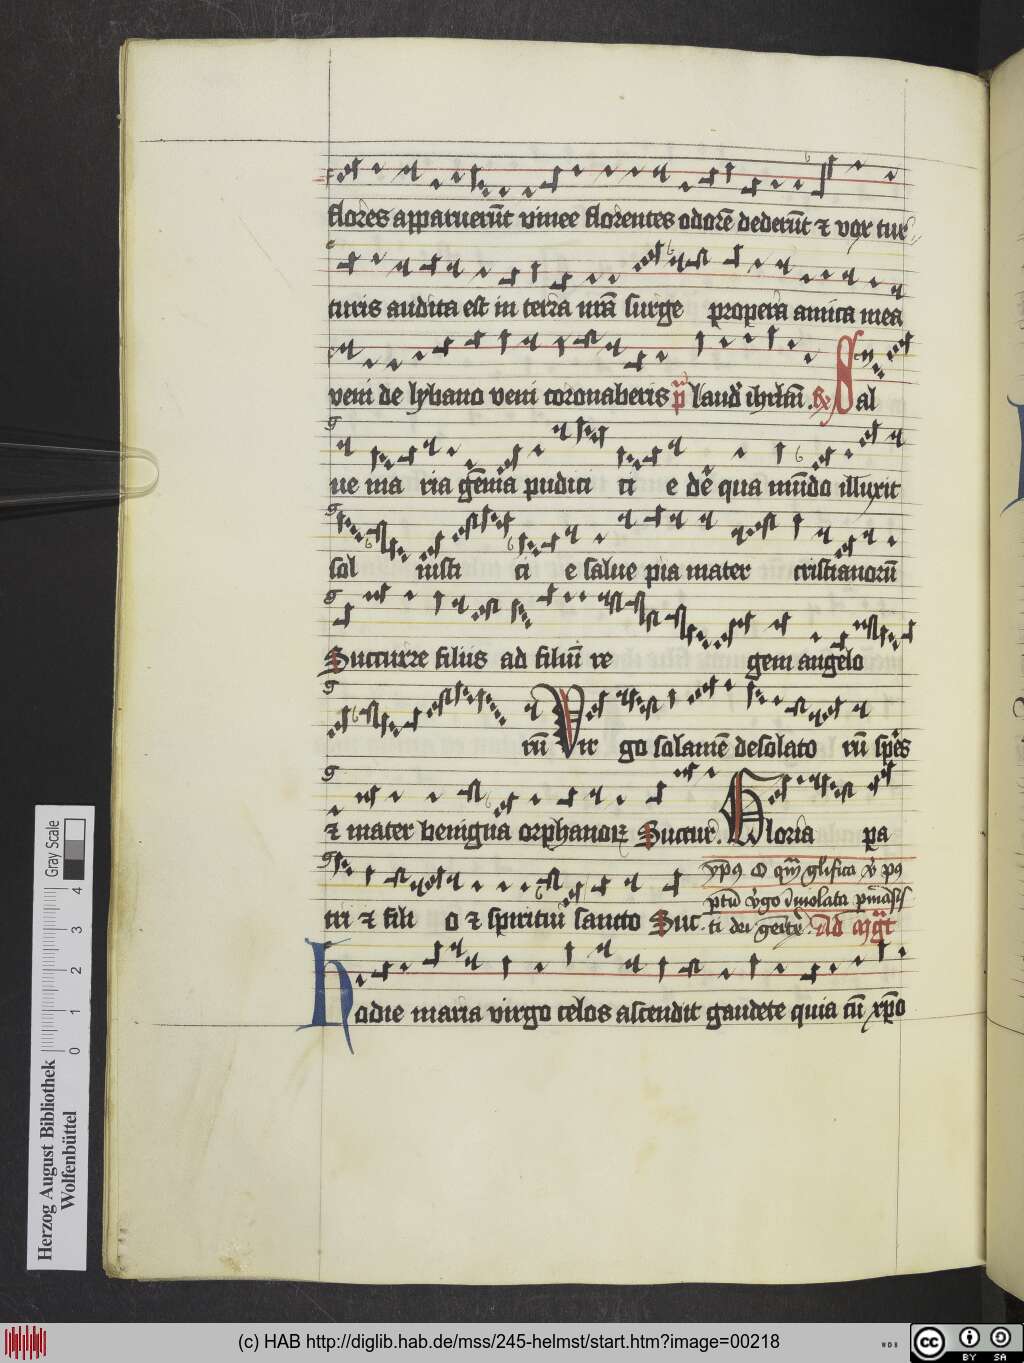 flores apparuerūt vinee florentes odorē dederūt ⁊ vox tur
turis audita est in terra nrā surge propera amica mea
veni de lybano veni coronaberis p̄ laud ihrlm̄ . R Sal
ue ma ria gēma pudici ci e dē qua mūdo illuxit
sol iusti ci e salue pia mater cristianorū
Succurre filiis ad filiū re gem angelo
rū Vir go solamē desolato rū spēs
⁊ mater benigna orphanoꝝ Succur. Gloria pa
tri ⁊ fili o ⁊ spiritui sancto Suc.
ti dei
Hodie maria virgo celos ascendit gaudete quia cū xp̄o
Gray Scale
0 1 2 3 4
Herzog August Bibliothek
Wolfenbüttel
(c) HAB http://diglib.hab.de/mss/245-helmst/start.htm?image=00218
WDB
cc
BY SA